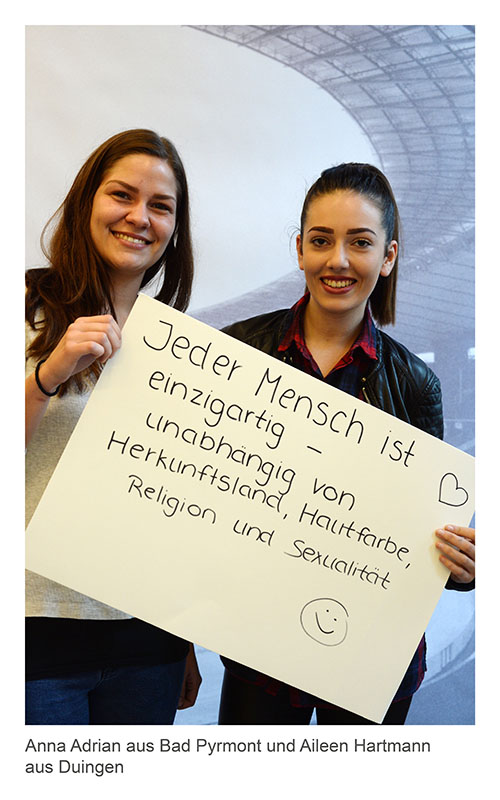 Jeder Mensch ist
einzigartig –
unabhängig von
Herkunftsland, Hautfarbe,
Religion und Sexualität
Anna Adrian aus Bad Pyrmont und Aileen Hartmann
aus Duingen